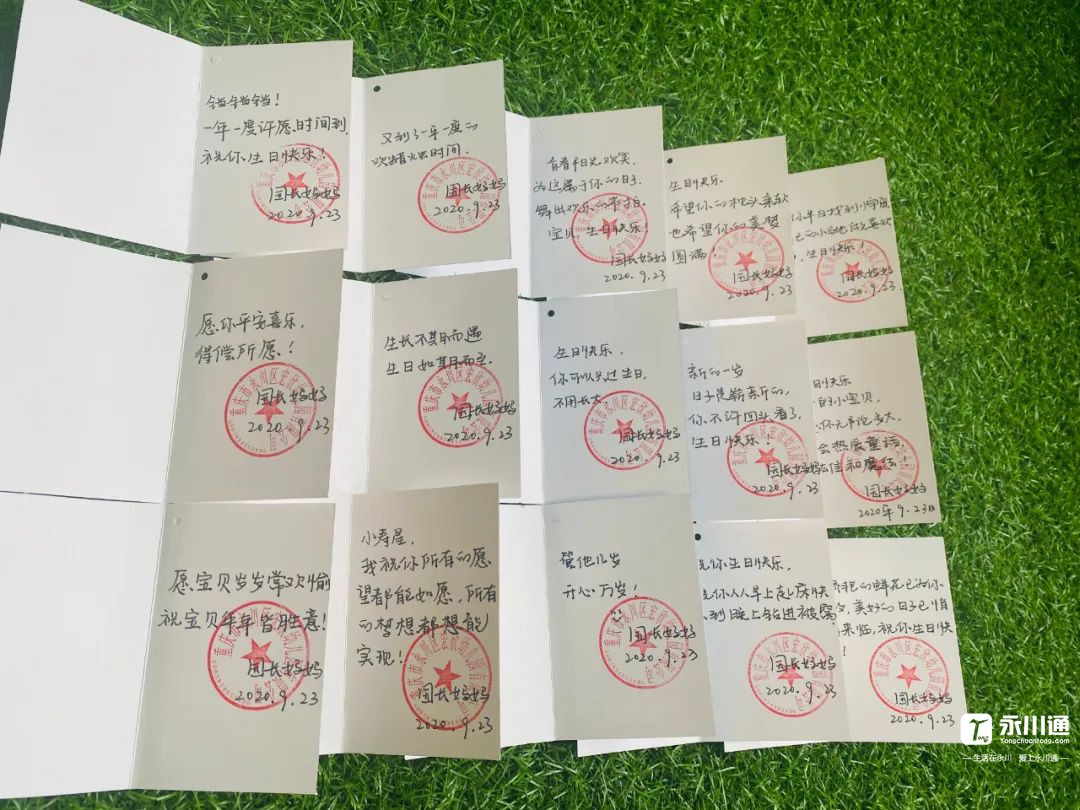 铛铛铛铛！
一年一度许愿时间到，
祝你生日快乐！
园长妈妈
2020.9.23
又到了一年一度的
吹蜡烛时间.
园长妈妈
2020.9.23
青春阳光欢笑.
为这属于你的日子.
舞出欢乐的节拍.
宝贝，生日快乐！
园长妈妈
2020.9.23
生日快乐.
希望你的枕头柔软
也希望你的美梦
圆满！
园长妈妈
2020.9.23
生日快乐！
园长妈妈
2020.9.23
愿你平安喜乐，
得偿所愿！
园长妈妈
2020.9.23
生长不期而遇
生日如期而至.
园长妈妈
2020.9.23
生日快乐.
你可以只过生日，
不用长大.
园长妈妈
2020.9.23
新的一岁
日子是崭新的，
你不许回头看了，
生日快乐！
园长妈妈
2020.9.23
日快乐
的小宝贝，
你无论多大
会热爱童话
信和魔法！
园长妈妈
2020年9.23日
愿宝贝岁岁常欢愉
祝宝贝年年皆胜意！
园长妈妈
2020.9.23
小寿星，
我祝你所有的愿
望都能如愿，所有
的梦想都想能
实现！
园长妈妈
2020.9.23
管他几岁
开心万岁！
园长妈妈
2020.9.23
你生日快乐，
你从早上起床快
到晚上钻进被窝
园长妈妈
2020.9.23
的鲜花已为你
美好的日子已悄
来临，祝你生日快
！
园长妈妈
2020.9.23
永川通
Yongchuantong.com
生活在永川 爱上永川通